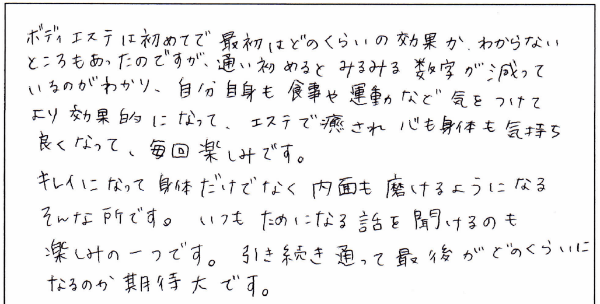 ボディエステは初めてで最初はどのくらいの効果か、わからない
ところもあったのですが、通い初めるとみるみる数字が減って
いるのがわかり、自分自身も食事や運動など気をつけて
より効果的になって、エステで癒され心も身体も気持ち
良くなって、毎回楽しみです。
キレイになって身体だけでなく内面も磨けるようになる
そんな所です。いつもためになる話を聞けるのも
楽しみの一つです。引き続き通って最後がどのくらいに
なるのか期待大です。